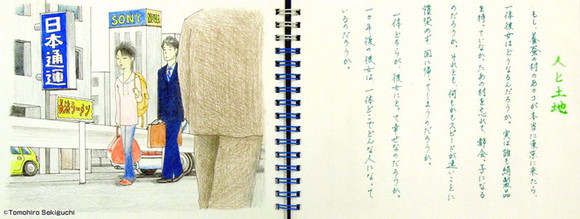 人と土地
もし、養蚕の村のあのコが本当に東京に来たら、
一体彼女はどうなるんだろうか。実は誰も絹製品
を持っていなかったあの村を忘れて、都会ッ子になる
のだろうか。それとも、何もかもスピードが速いことに
馴染めず、国に帰ってしまうのだろうか。
一体どちらが、彼女にとって幸せなのだろうか。
一〇年後の彼女は、一体どこでどんな人になって
いるのだろうか。
SONY
日本通運
ラーメン
©Tomohiro Sekiguchi